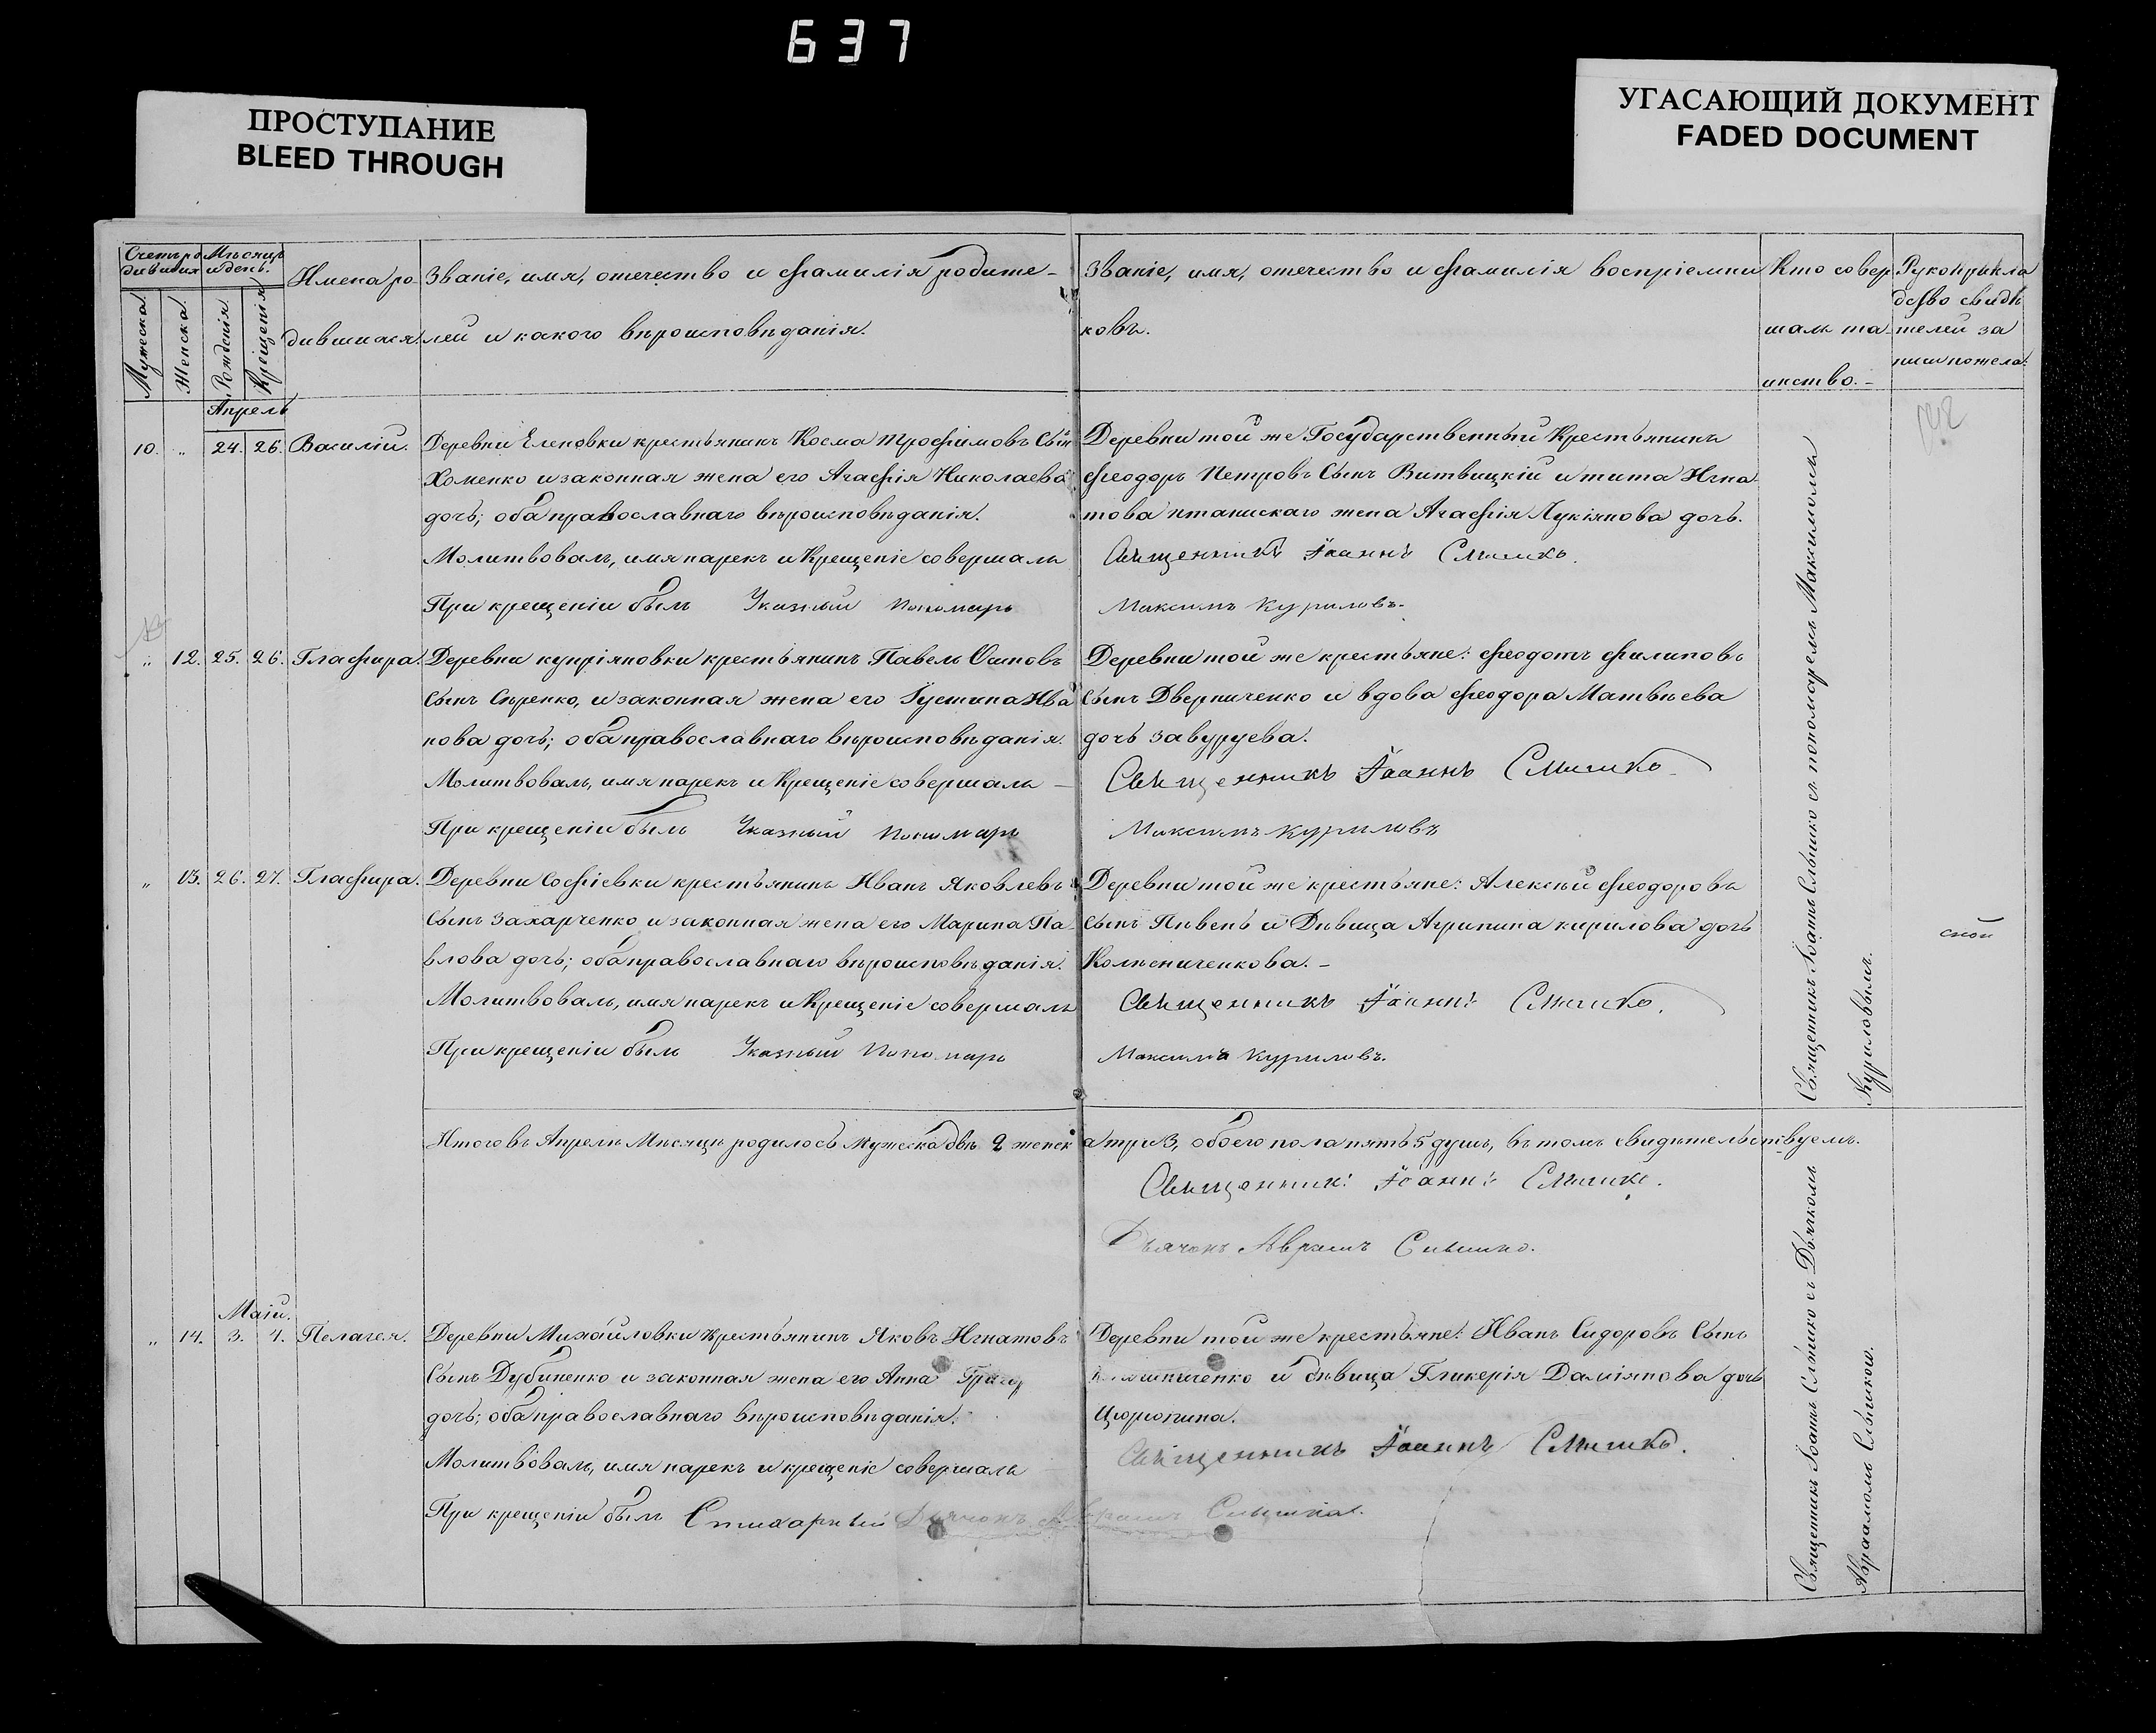 637
ПРОСТУПАНИЕ
BLEED THROUGH
УГАСАЮЩИЙ ДОКУМЕНТ
FADED DOCUMENT
Счетъ ро
дившихся
Мѣсяцъ
и день.
Мужеска
Женска
Рожденія
Крещенія
Имена ро-
дившихся.
Званіе, имя, отечество и фамилія родите-
лей и какого вѣроисповѣданія.
Званіе, имя, отечество и фамилія воспріемни
ковъ.
Кто совер
шалъ та-
инство.-
Рукоприкла
дство свидѣ
телей за
писи по жела:
Апрель
10. „ 24. 26. Василій. Деревни Еленовки крестьянинъ Косма Трофимовъ Сынъ
Хоменко и законная жена его Агафія Николаева
дочь; оба православнаго вѣроисповѣданія.
Молитвовалъ, имя нарекъ и Крещеніе совершалъ
При крещеніи былъ Указный Пономарь
Деревни той же Государственный Крестьянинъ
Феодоръ Петровъ Сынъ Витвицкій и тита Игна
това жена Агафія Лукіянова дочь.
Священникъ Іоаннъ
Максимъ Куриловъ.
„ 12. 25. 26. Глафира. Деревни купріяновки крестьянинъ Павелъ Осиповъ
Сынъ Сѣренко, и законная жена его Іустина Ива
нова дочь; оба православнаго вѣроисповѣданія.
Молитвовалъ, имя нарекъ и Крещеніе совершалъ –
При крещеніи былъ Указный Пономарь
Деревни той же крестьяне: Феодотъ Филиповъ
Сынъ Дверниченко и вдова Феодора Матвѣева
дочь
Священникъ Іоаннъ
Максимъ Куриловъ
„ 13. 26. 27. Глафира. Деревни Софіевки крестьянинъ Иванъ Яковлевъ
Сынъ Захарченко и законная жена его Марина Па-
влова дочь; оба православнаго вѣроисповѣданія.
Молитвовалъ, имя нарекъ и Крещеніе совершалъ
При крещеніи былъ Указный Пономарь
Деревни той же крестьяне: Алексѣй Феодоровъ
Сынъ Пѣвень и Дѣвица Агрипина кирилова дочь
Колѣсниченкова.-
Священникъ Іоаннъ
Максимъ Куриловъ.
Священникъ Іоаннъ съ пономаремъ Максимомъ
Куриловымъ.
Итого въ Апрелѣ Мѣсяцѣ родилось мужеска двѣ 2 женска три 3, обоего пола пять 5 душъ, въ томъ свидѣтельствуемъ.
Священникъ Іоаннъ
Дьячокъ Авраамъ
Маій.
„ 14. 3. 4. Пелагея. Деревни Михайловки крестьянинъ Яковъ Игнатовъ
Сынъ Дубиненко и законная жена его Анна
дочь; оба православнаго вѣроисповѣданія.
Молитвовалъ, имя нарекъ и крещеніе совершалъ
При крещеніи былъ Стихарный Дьячокъ Авраамъ
Деревни той же крестьяне: Иванъ Сидоровъ Сынъ
и дѣвица Гликерія Даміянова дочь
Священникъ Іоаннъ
Священникъ Іоаннъ съ Дьячкомъ
Авраамомъ